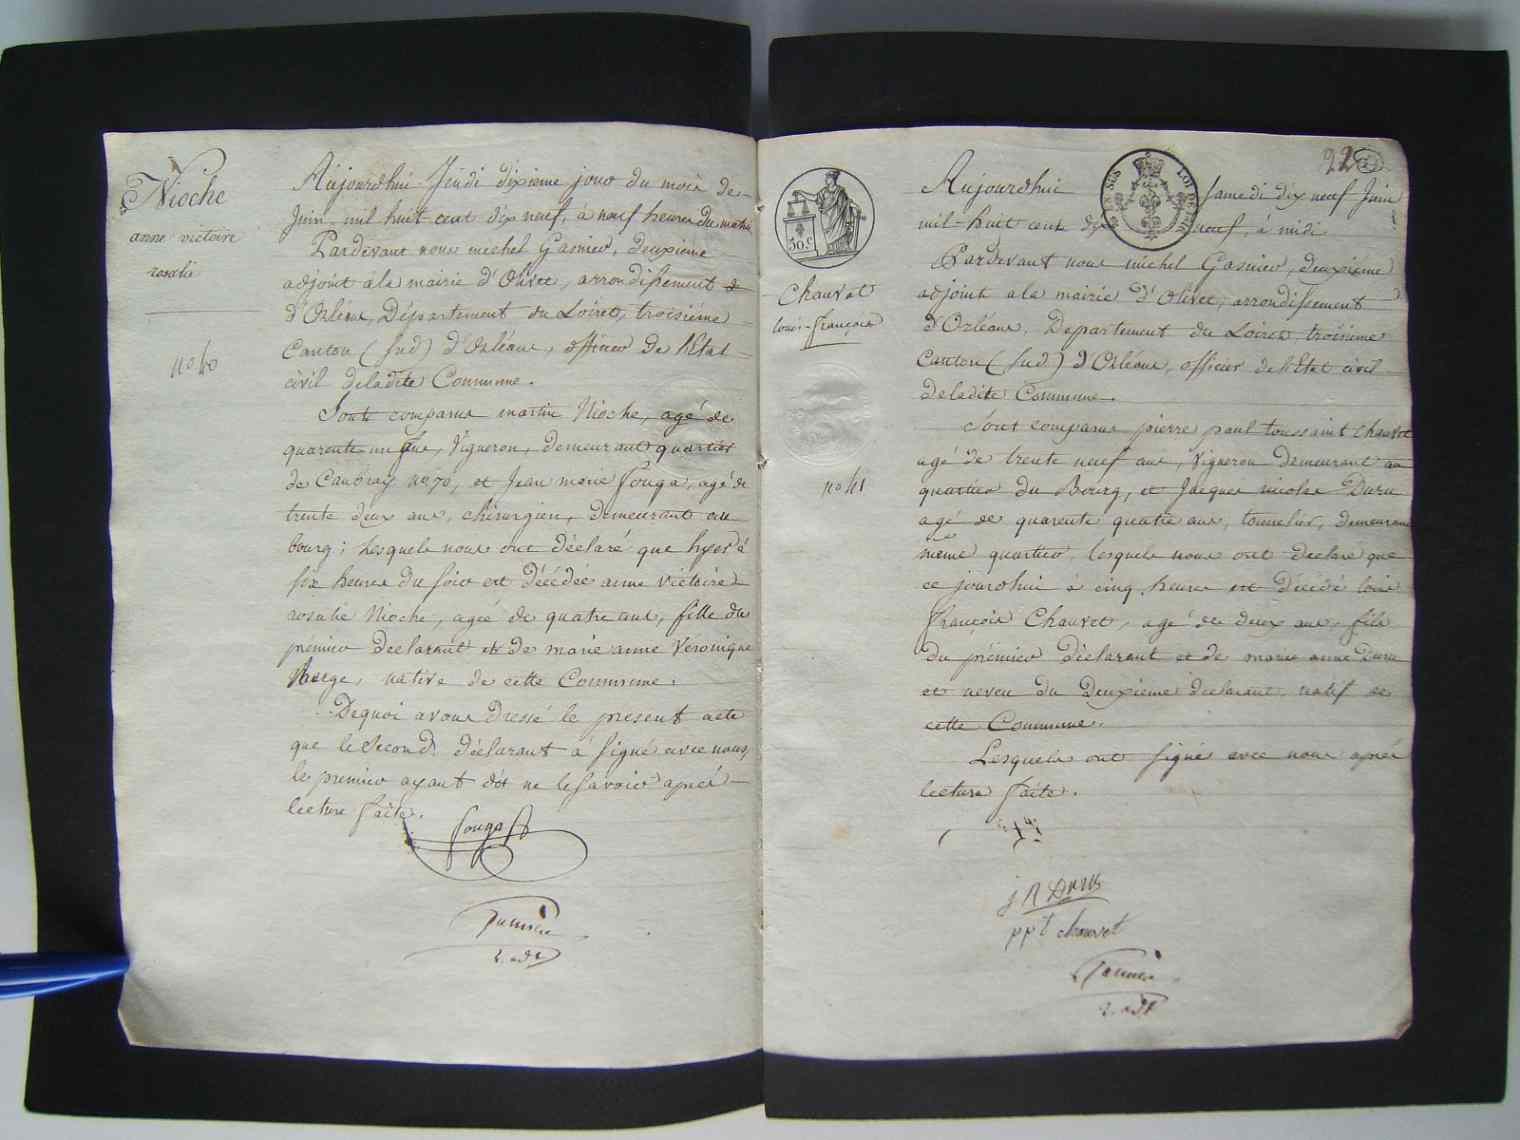 Nioche
anne victoire
rosalie
no 40
Aujourdhui Jeudi dixieme jour du mois de
Juin mil huit cent dix neuf, à neuf heures du matin
Pardevant nous michel Gasnier, deuxieme
adjoint à la mairie d'Olivet, arrondissement
d'Orléans, Département du Loiret, troisième
Canton (sud) d'Orléans, officier de l'Etat
civil de ladite Commune.
Sont comparus martin Nioche, agé de
quarante un ans, Vigneron, demeurant quartier
de no 70, et Jean marie Fouga, agé de
trente deux ans, chirurgien, demeurant au
bourg; Lesquels nous ont déclaré que hyer à
six heures du soir est décédée anne victoire
rosalie Nioche, agée de quatre ans, fille du
prémier declarant et de marie anne Véronique
native de cette Commune.
Dequoi avons Dressé le present acte
que le second déclarant à signé avec nous,
le premier ayant dit ne le savoir après
lecture faite.
fouga
2. adt
22
SUS
LOI
30.c
Chauvet
louis-françois
no 41
Aujourdhui Samedi dix neuf Juin
mil-huit cent dix neuf, à midi
Pardevant nous michel Gasnier, deuxième
adjoint a la mairie d'Olivet, arrondissement
d'Orléans, Departement du Loiret, troisieme
Canton (sud) d'Orléans, officier de l'Etat civil
de ladite Commune.
sont comparus pierre paul toussaint Chauvet
agé de trente neuf ans, Vigneron demeurant au
quartier du Bourg, et Jacques nicolas Duru
agé de quarante quatre ans, tonnelier, demeurant
même quartier, lesquels nous ont declaré que
ce jourdhui à cinq heures est décédé louis
françois Chauvet, agé de deux ans, fils
du prémier déclarant et de marie anne Duru
et neveu du Deuxieme déclarant, natif de
cette Commune.
Lesquels ont signé avec nous après
lecture faite.
j n Duru
ppt chauvet
2. adt